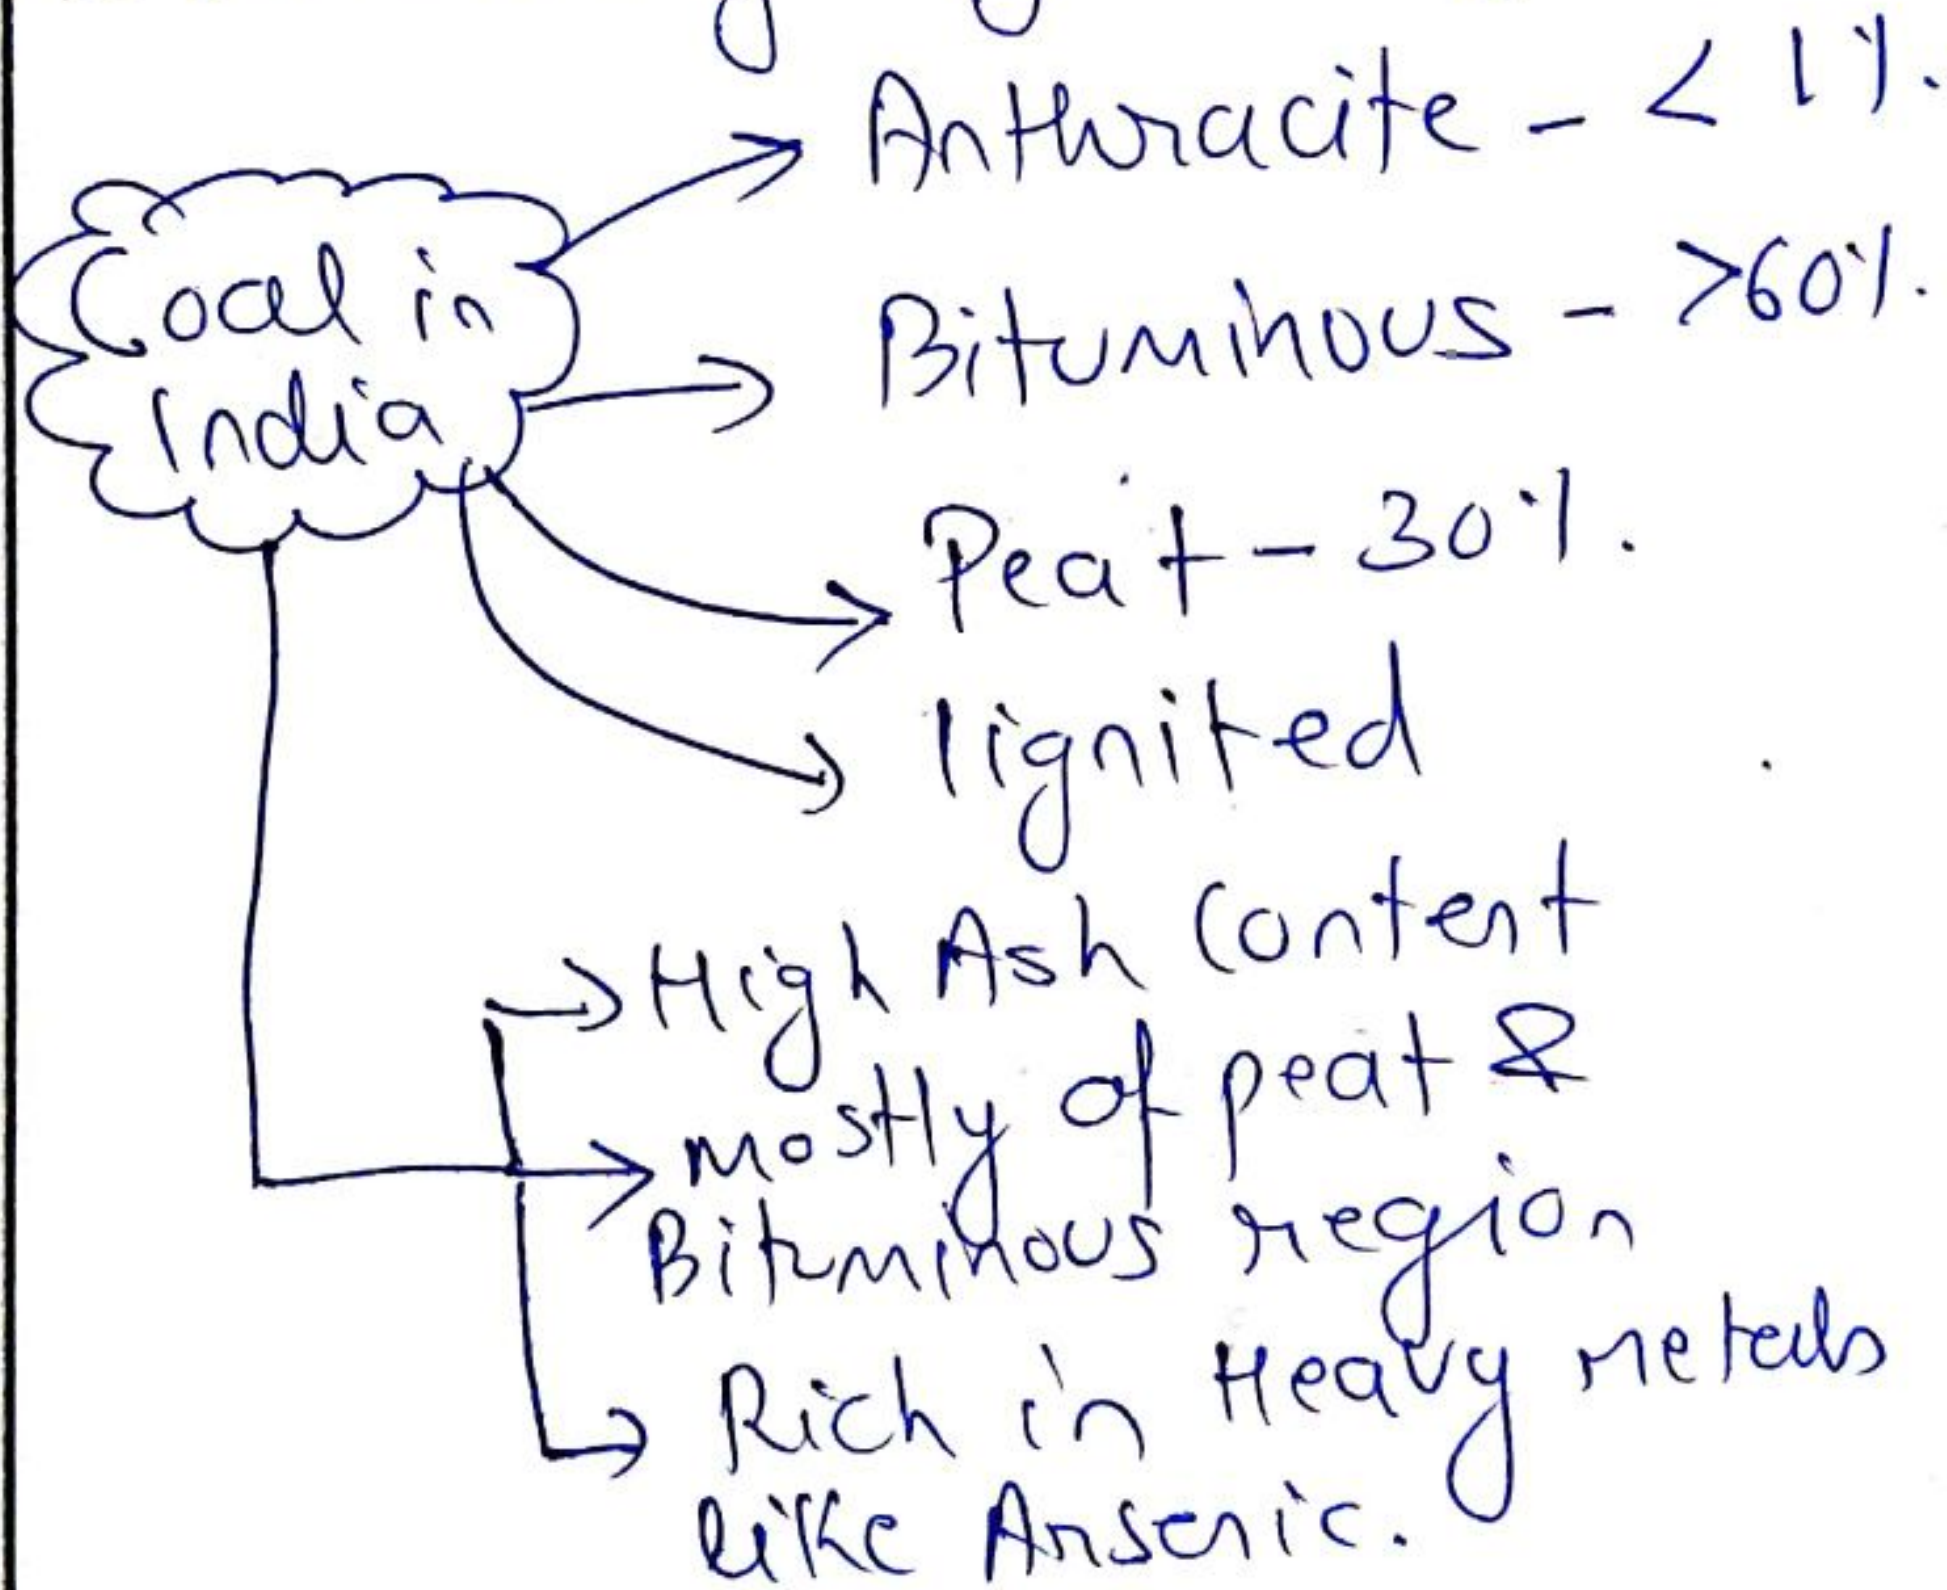 Anthracite - < 1%.
Coal in
India
Bituminous - >60%.
Peat - 30%.
lignited
High Ash Content
mostly of peat &
Bituminous region
Rich in Heavy metals
like Arsenic.